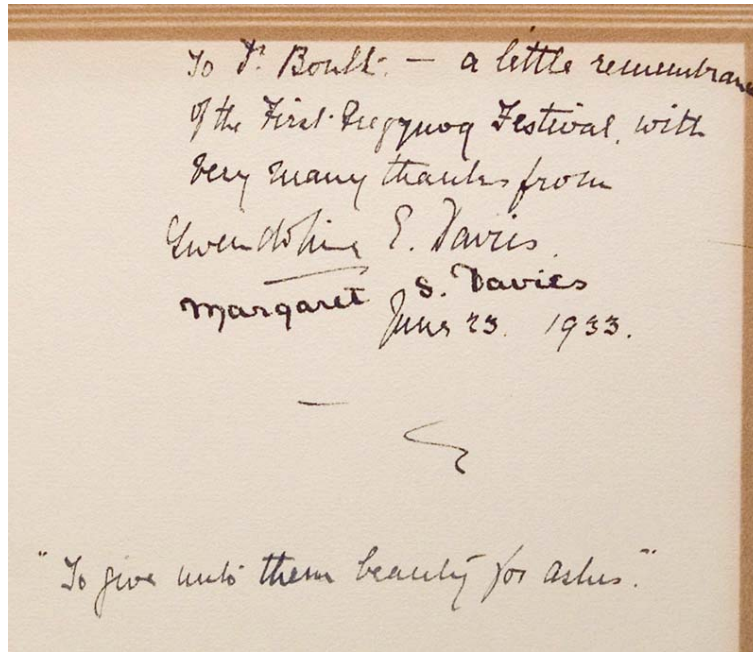 To Dr. Boult. — a little remembrance
of the First Gregynog Festival, with
very many thanks from
Gwendoline E. Davies.
Margaret S. Davies
June 23. 1933.
"To give unto them beauty for ashes."